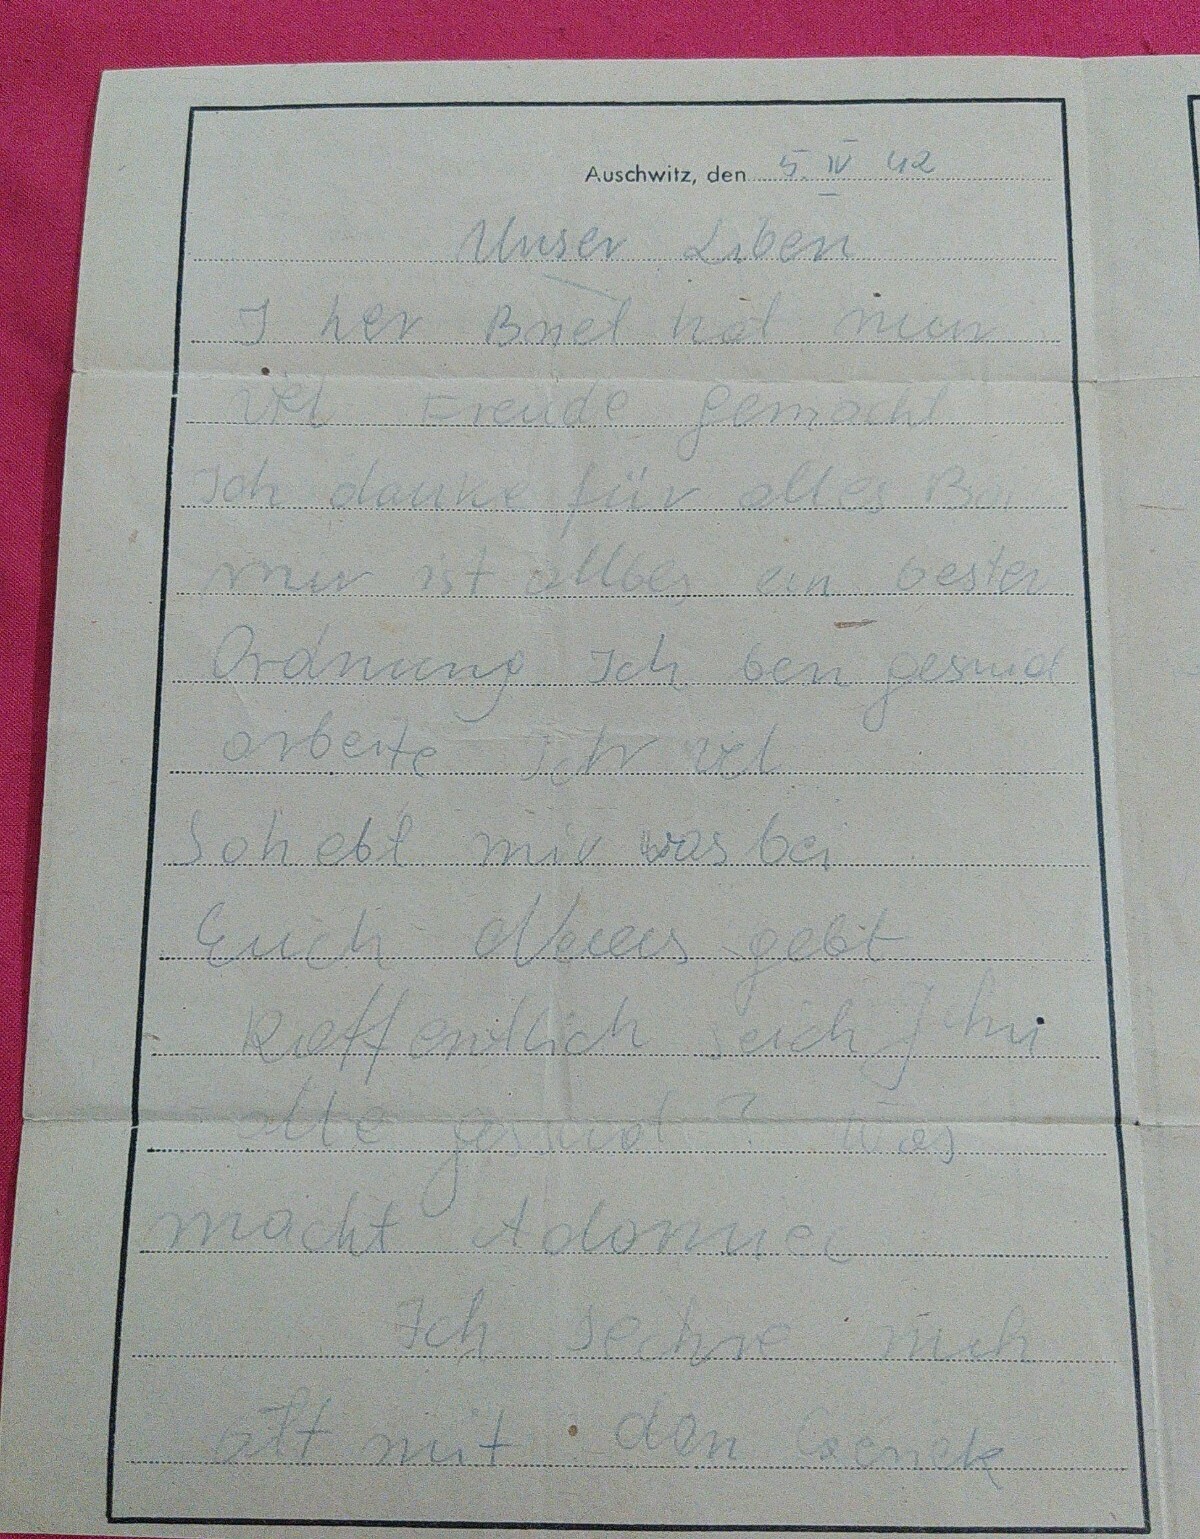 Auschwitz, den 5. IV 42
Unser Liben
I her Brief hat mir
vil Freude gemacht
Ich danke für alles Bai
mir ist allbes ein bester
Ordnung Ich ben gesund
arbeite Ich vil
Schebt mir was bei
Euch Neues gebt
Hoffentlich seich Ihr
alle gesund? Was
macht
Ich sechne mich
oft mit den Genek